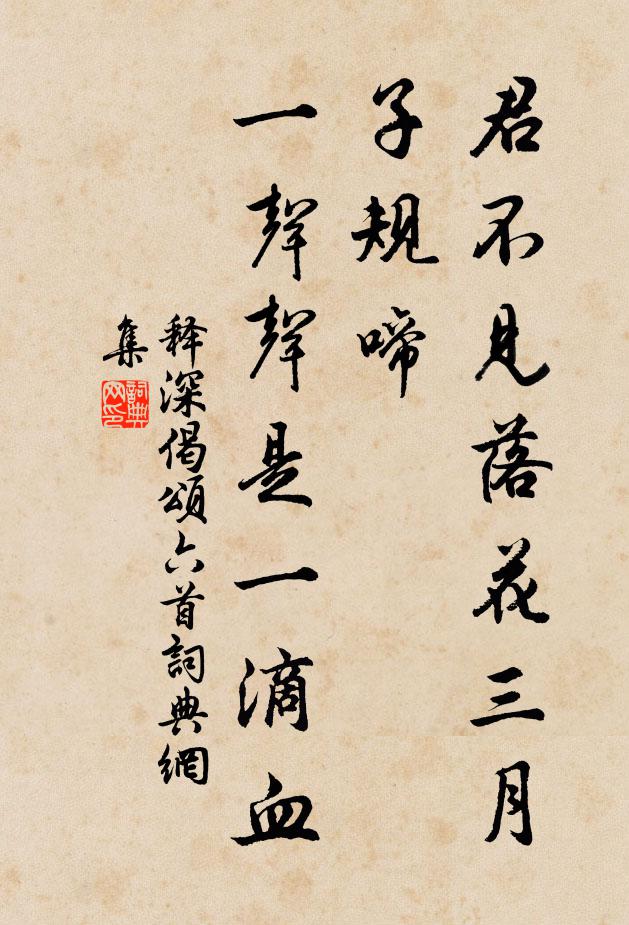 君不見落花三月
子規啼
一聲聲是一滴血
释深偈頌六首詞典網
集
詞典
网印